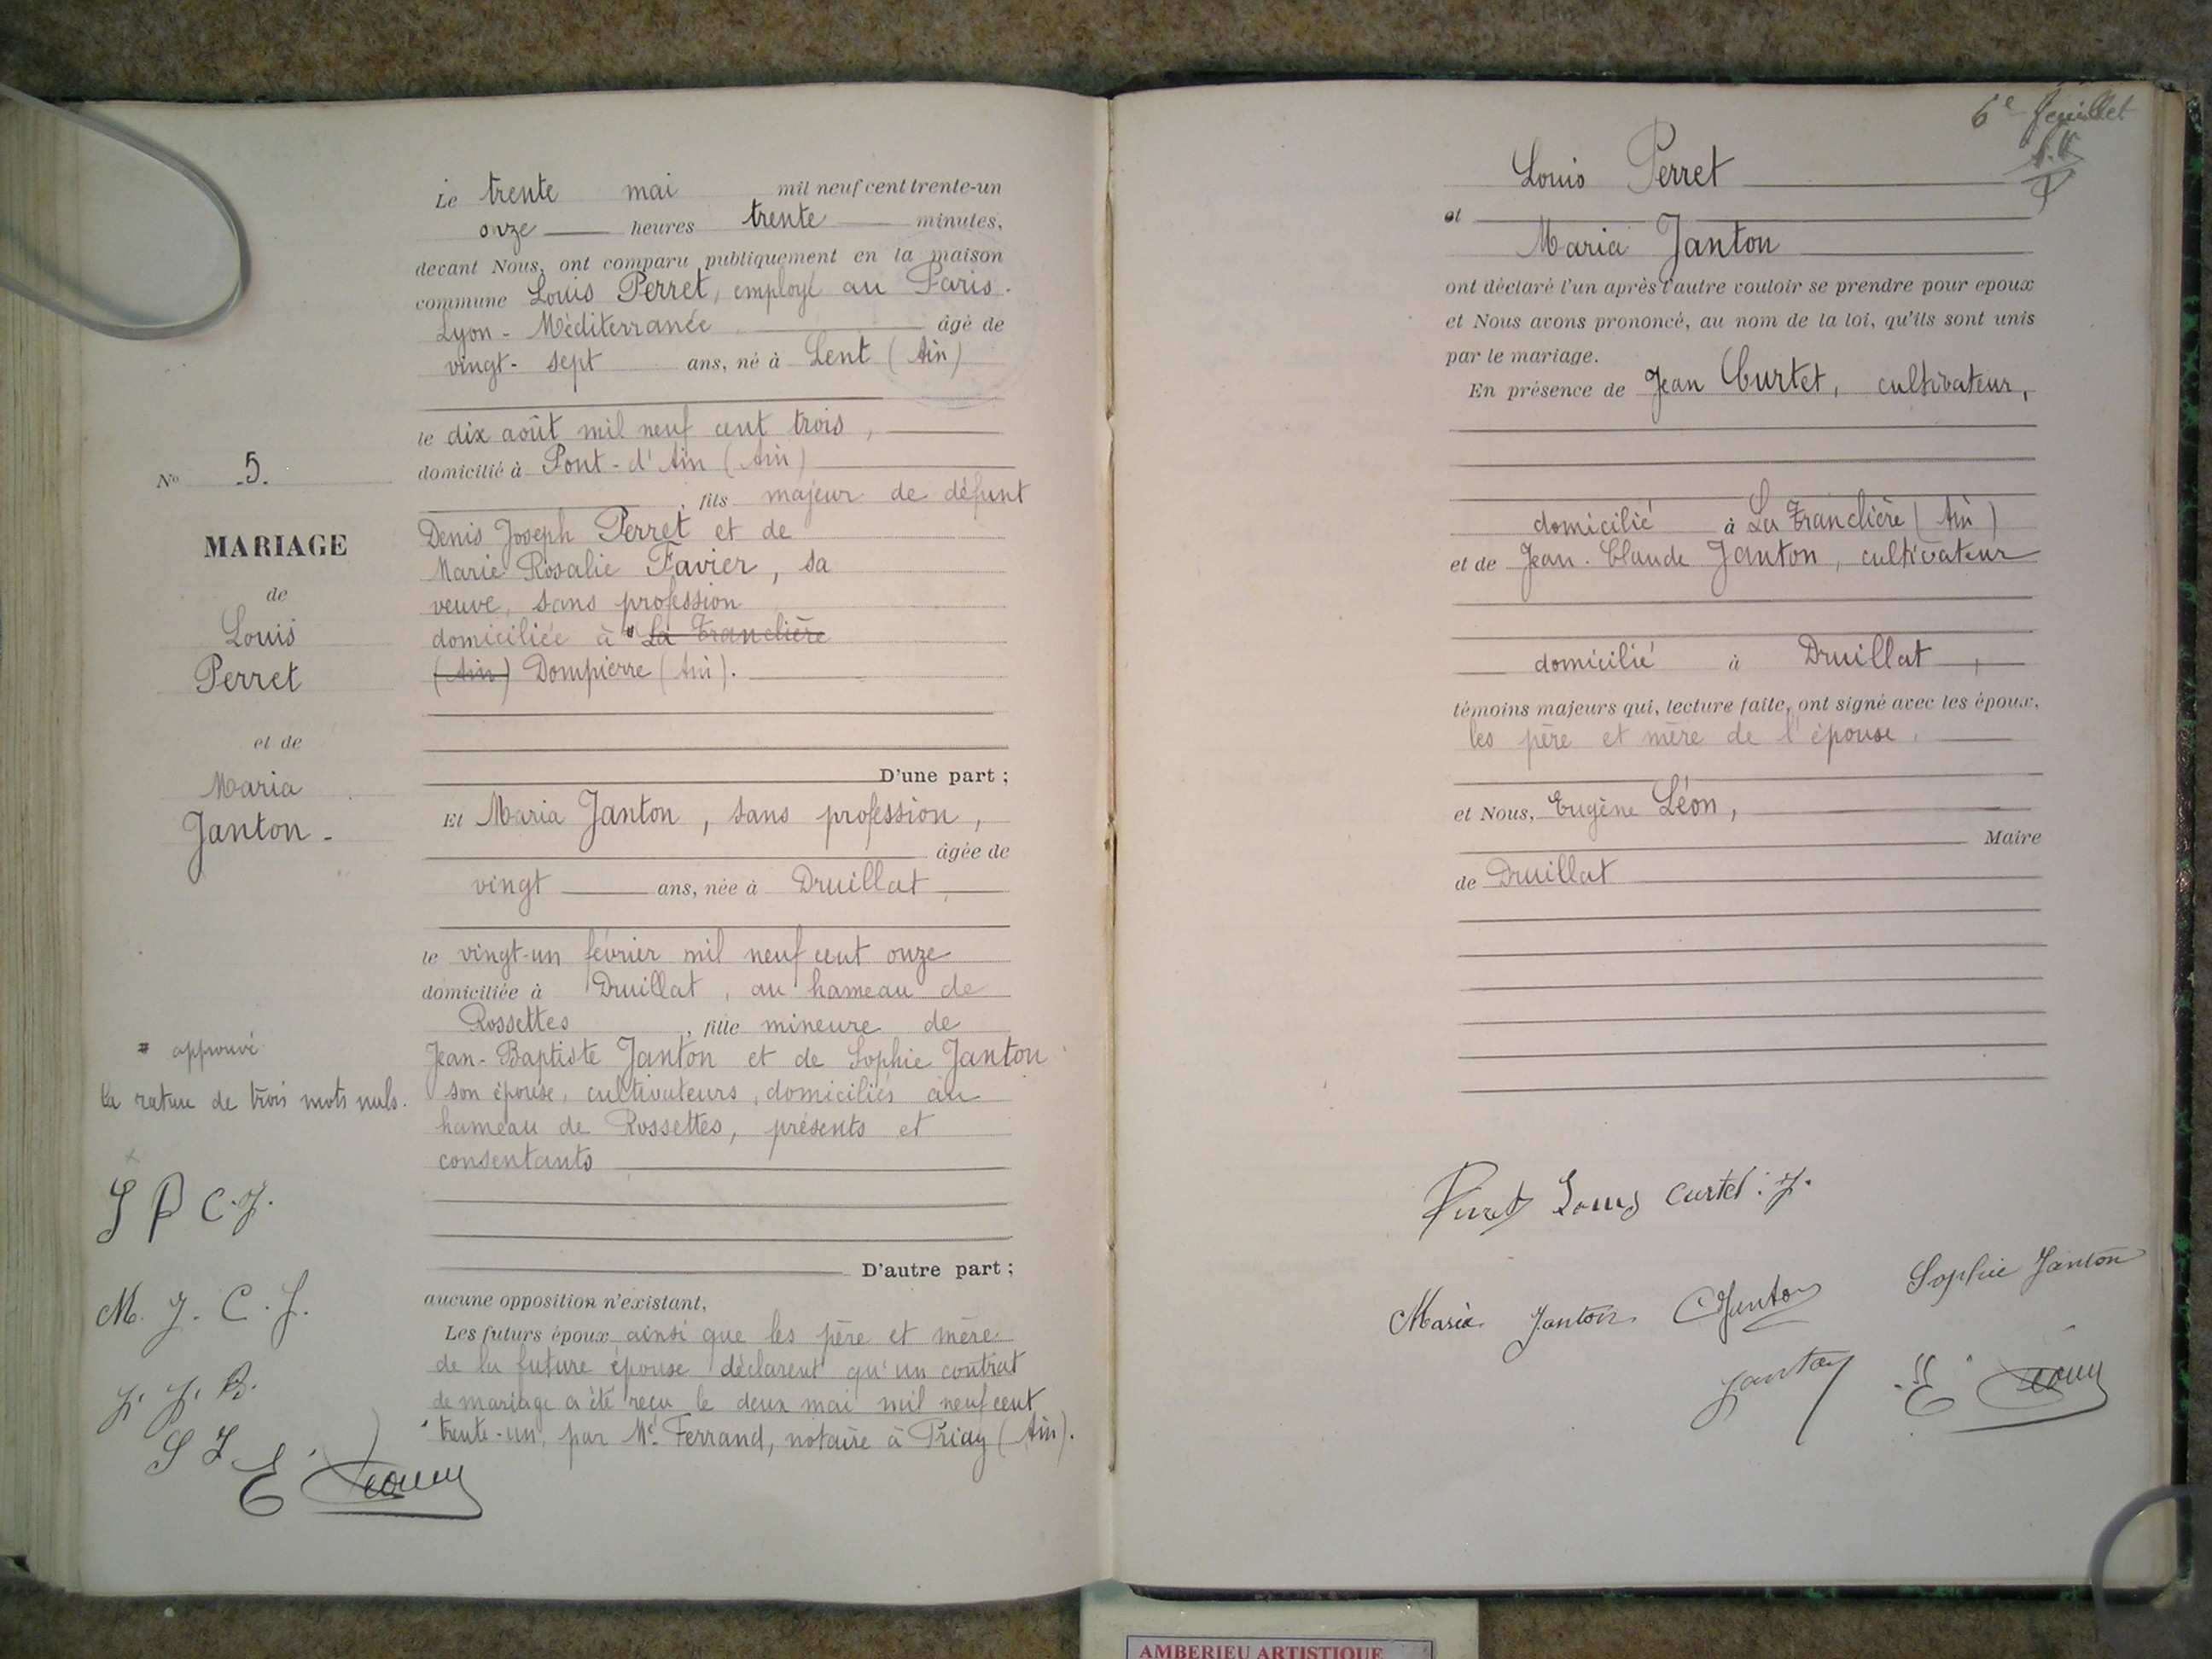 Le trente mai mil neuf cent trente-un
onze heures trente minutes,
devant Nous, ont comparu publiquement en la maison
commune Louis Perret, employé au Paris.
Lyon - Méditerranée âgé de
vingt-sept ans, né à Lent (Ain)
le dix août mil neuf cent trois,
domicilié à Pont-d'Ain (Ain)
, fils majeur de défunt
Denis Joseph Perret et de
Marie Rosalie Favier, sa
veuve, sans profession
domiciliée à La Tranclière
(Ain) Dompierre (Ain).
D'une part;
Et Maria Janton, sans profession,
âgée de
vingt ans, née à Druillat
le vingt-un février mil neuf cent onze
domiciliée à Druillat, au hameau de
Rossettes, fille mineure de
Jean-Baptiste Janton et de Sophie Janton
son épouse, cultivateurs, domiciliés au
hameau de Rossettes, présents et
consentants
D'autre part;
aucune opposition n'existant,
Les futurs époux ainsi que les père et mère
de la future épouse déclarent qu'un contrat
de mariage a été reçu le deux mai mil neuf cent
trente-un, par Me Ferrand, notaire à Priay (Ain).
No 5.
MARIAGE
de
Louis
Perret
et de
Maria
Janton -
approuvé
la rature de trois mots nuls.
M. J. C. J.
J. J. B.
S J
E Léon
6e feuillet
Louis Perret
et
Maria Janton
ont déclaré l'un après l'autre vouloir se prendre pour époux
et Nous avons prononcé, au nom de la loi, qu'ils sont unis
par le mariage.
En présence de Jean Curtet, cultivateur,
domicilié à La Tranclière (Ain)
et de Jean-Claude Janton, cultivateur
domicilié à Druillat,
témoins majeurs qui, lecture faite, ont signé avec les époux,
les père et mère de l'épouse,
et Nous, Eugène Léon,
Maire
de Druillat
Perret Louis Curtet. J.
Maria Janton CJanton Sophie Janton
Janton E Léon
AMBERIEU ARTISTIQUE